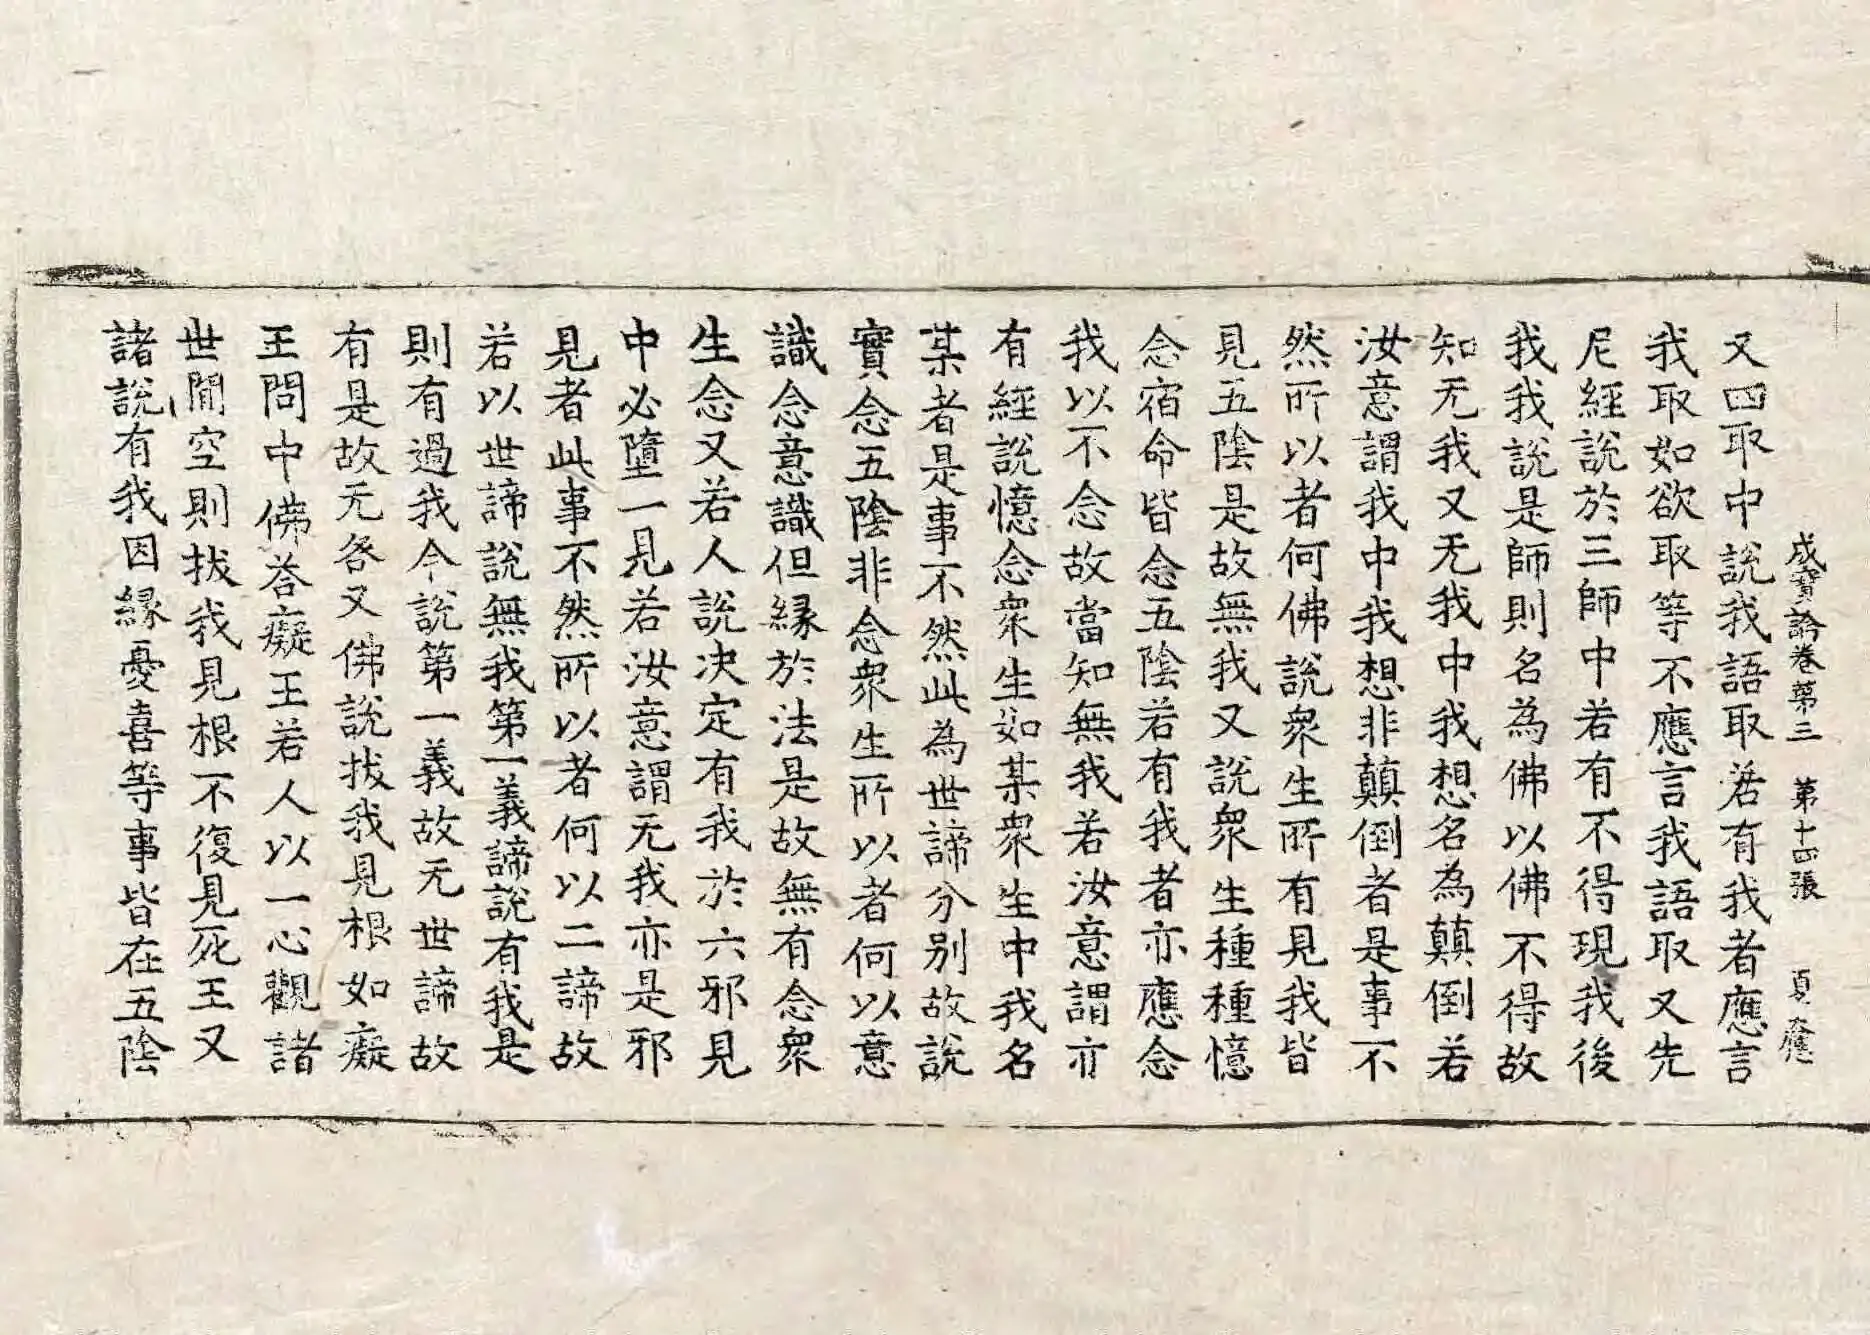 成實論卷第三　第十四張　夏䧹
又四取中說我語取若有我者應言
我取如欲取等不應言我語取又先
尼經說於三師中若有不得現我後
我我說是師則名為佛以佛不得故
知无我又无我中我想名為顛倒若
汝意謂我中我想非顛倒者是事不
然所以者何佛說衆生所有見我皆
見五陰是故無我又說衆生種種憶
念宿命皆念五陰若有我者亦應念
我以不念故當知無我若汝意謂亦
有經說憶念衆生如某衆生中我名
某者是事不然此為世諦分別故說
實念五陰非念衆生所以者何以意
識念意識但緣於法是故無有念衆
生念又若人說決定有我於六邪見
中必墮一見若汝意謂无我亦是邪
見者此事不然所以者何以二諦故
若以世諦說無我第一義諦說有我是
則有過我今說第一義故无世諦故
有是故无咎又佛說拔我見根如癡
王問中佛荅癡王若人以一心觀諸
世閒空則拔我見根不復見死王又
諸說有我因緣憂喜等事皆在五陰